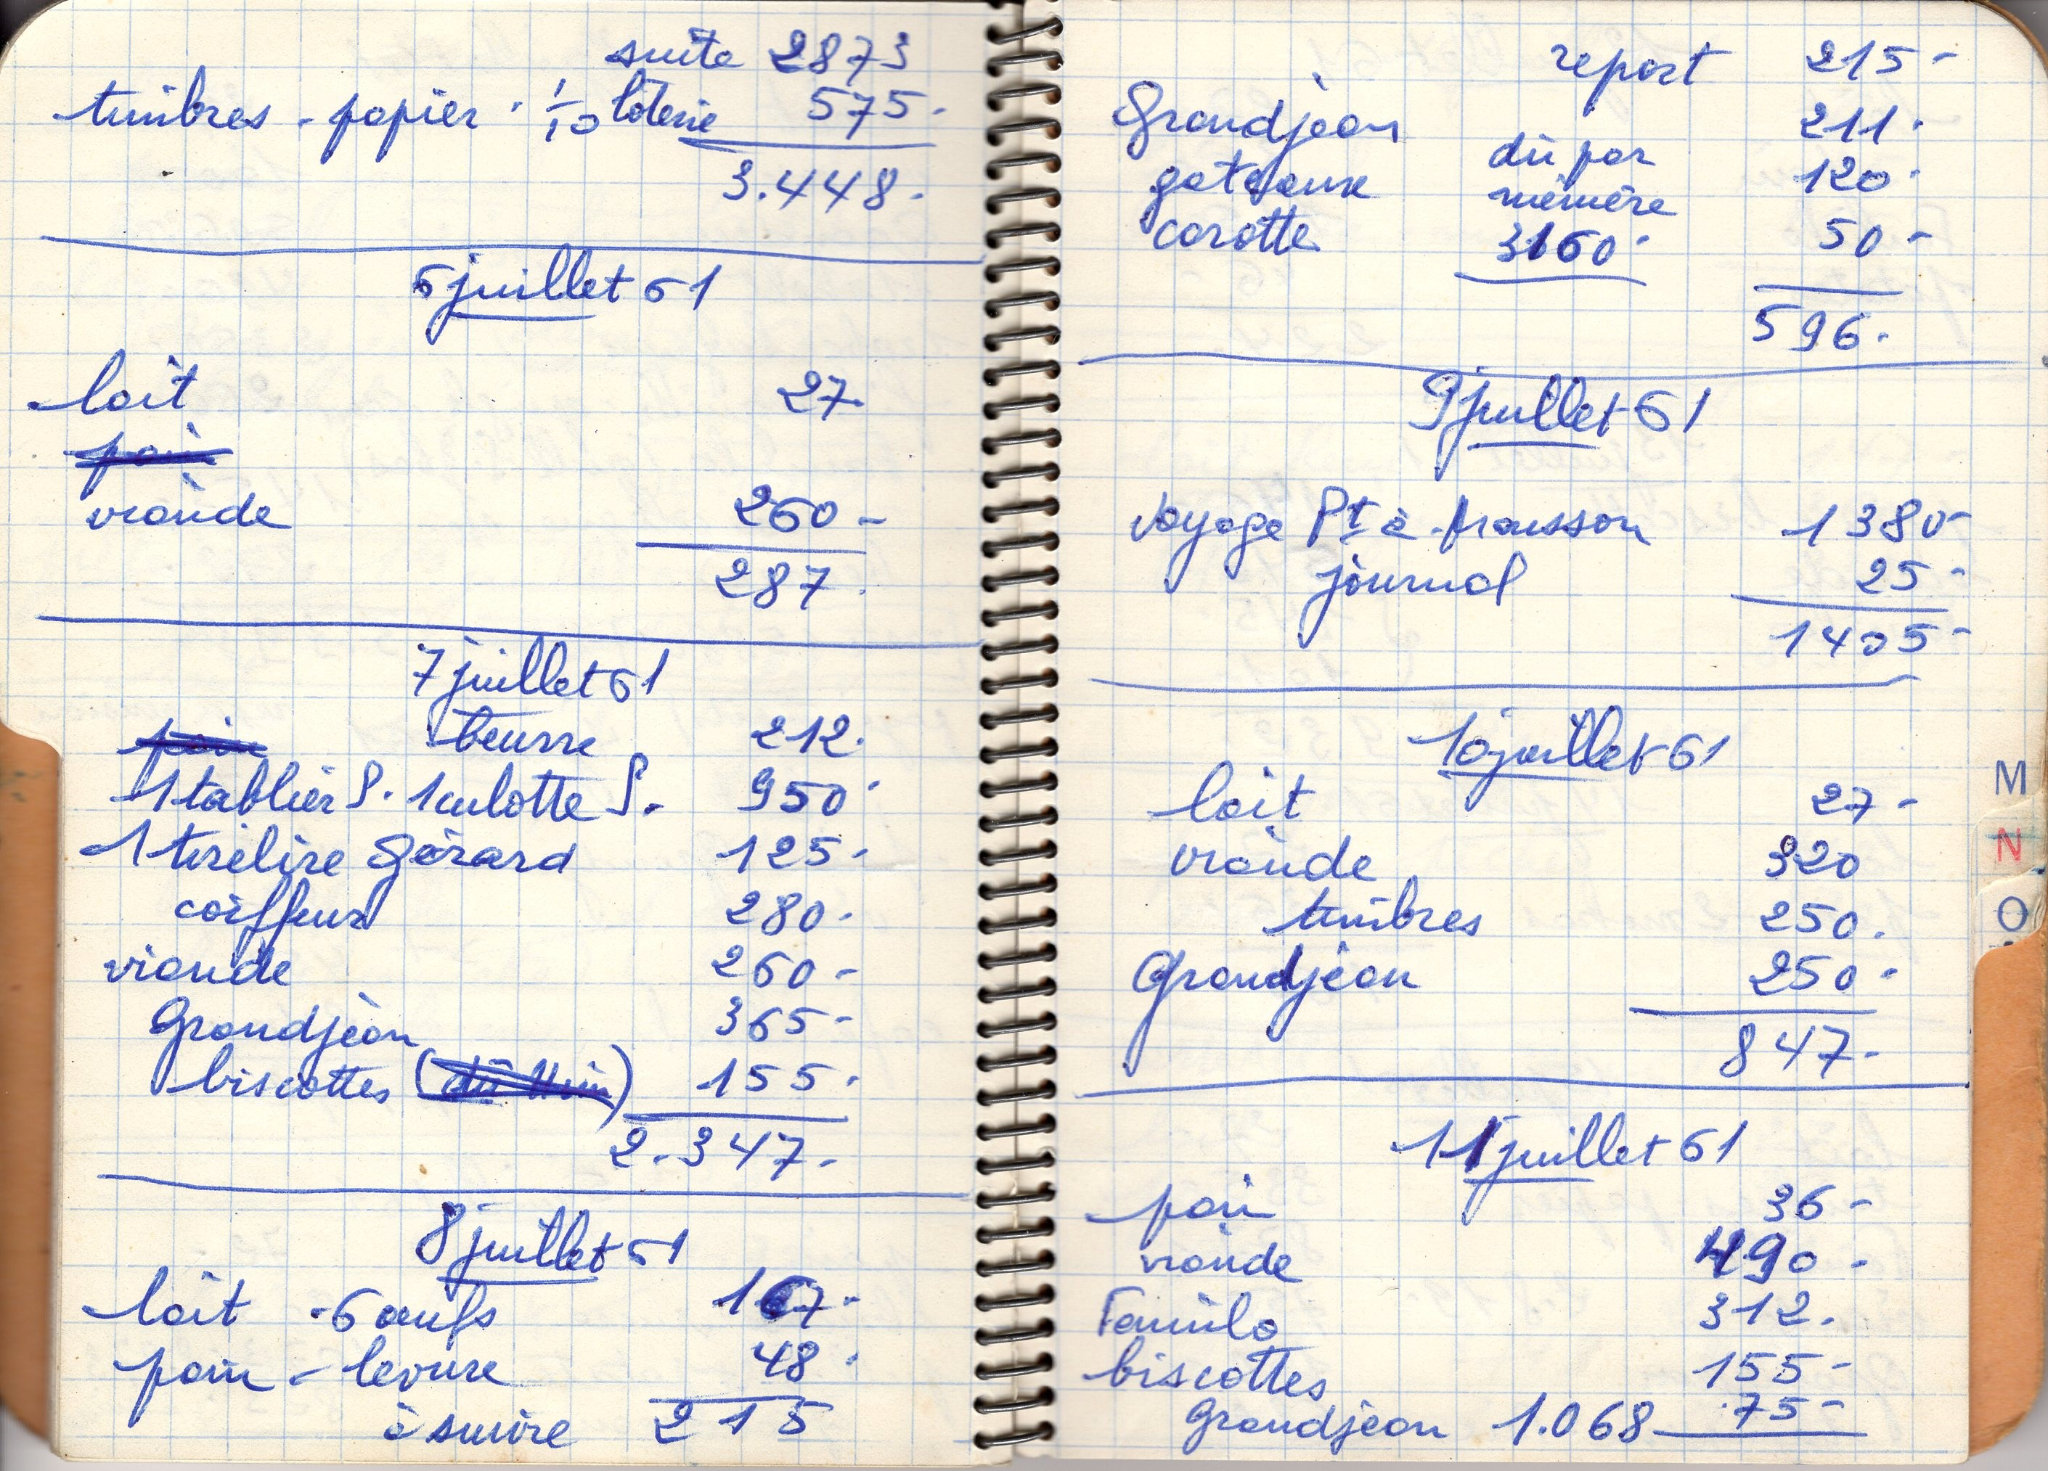 suite 2873
timbres - papier - 1/10 loterie 575.
3.448.
6 juillet 61
lait 27.
pain
viande 260 -
287.
7 juillet 61
pain beurre 212.
1 tablier S. 1 culotte S. 950.
1 tirelire Gérard 125.
coiffeur 280.
viande 260 -
Grandjean 365 -
biscottes ( ) 155.
2.347.
8 juillet 61
lait - 6 œufs 167.
pain - levure 48.
à suivre 215
report 215 -
Grandjean 211.
gateaux dû par 120.
mémère
carotte 3160. 50 -
596.
9 juillet 61
voyage Pt à mousson 1380 -
journal 25 -
1405 -
10 juillet 61
lait 27 -
viande 320
timbres 250.
Grandjean 250 -
847.
11 juillet 61
pain 36 -
viande 490 -
Familo 312.
biscottes 155 -
Grandjean 1.068 75 -
M
N
O